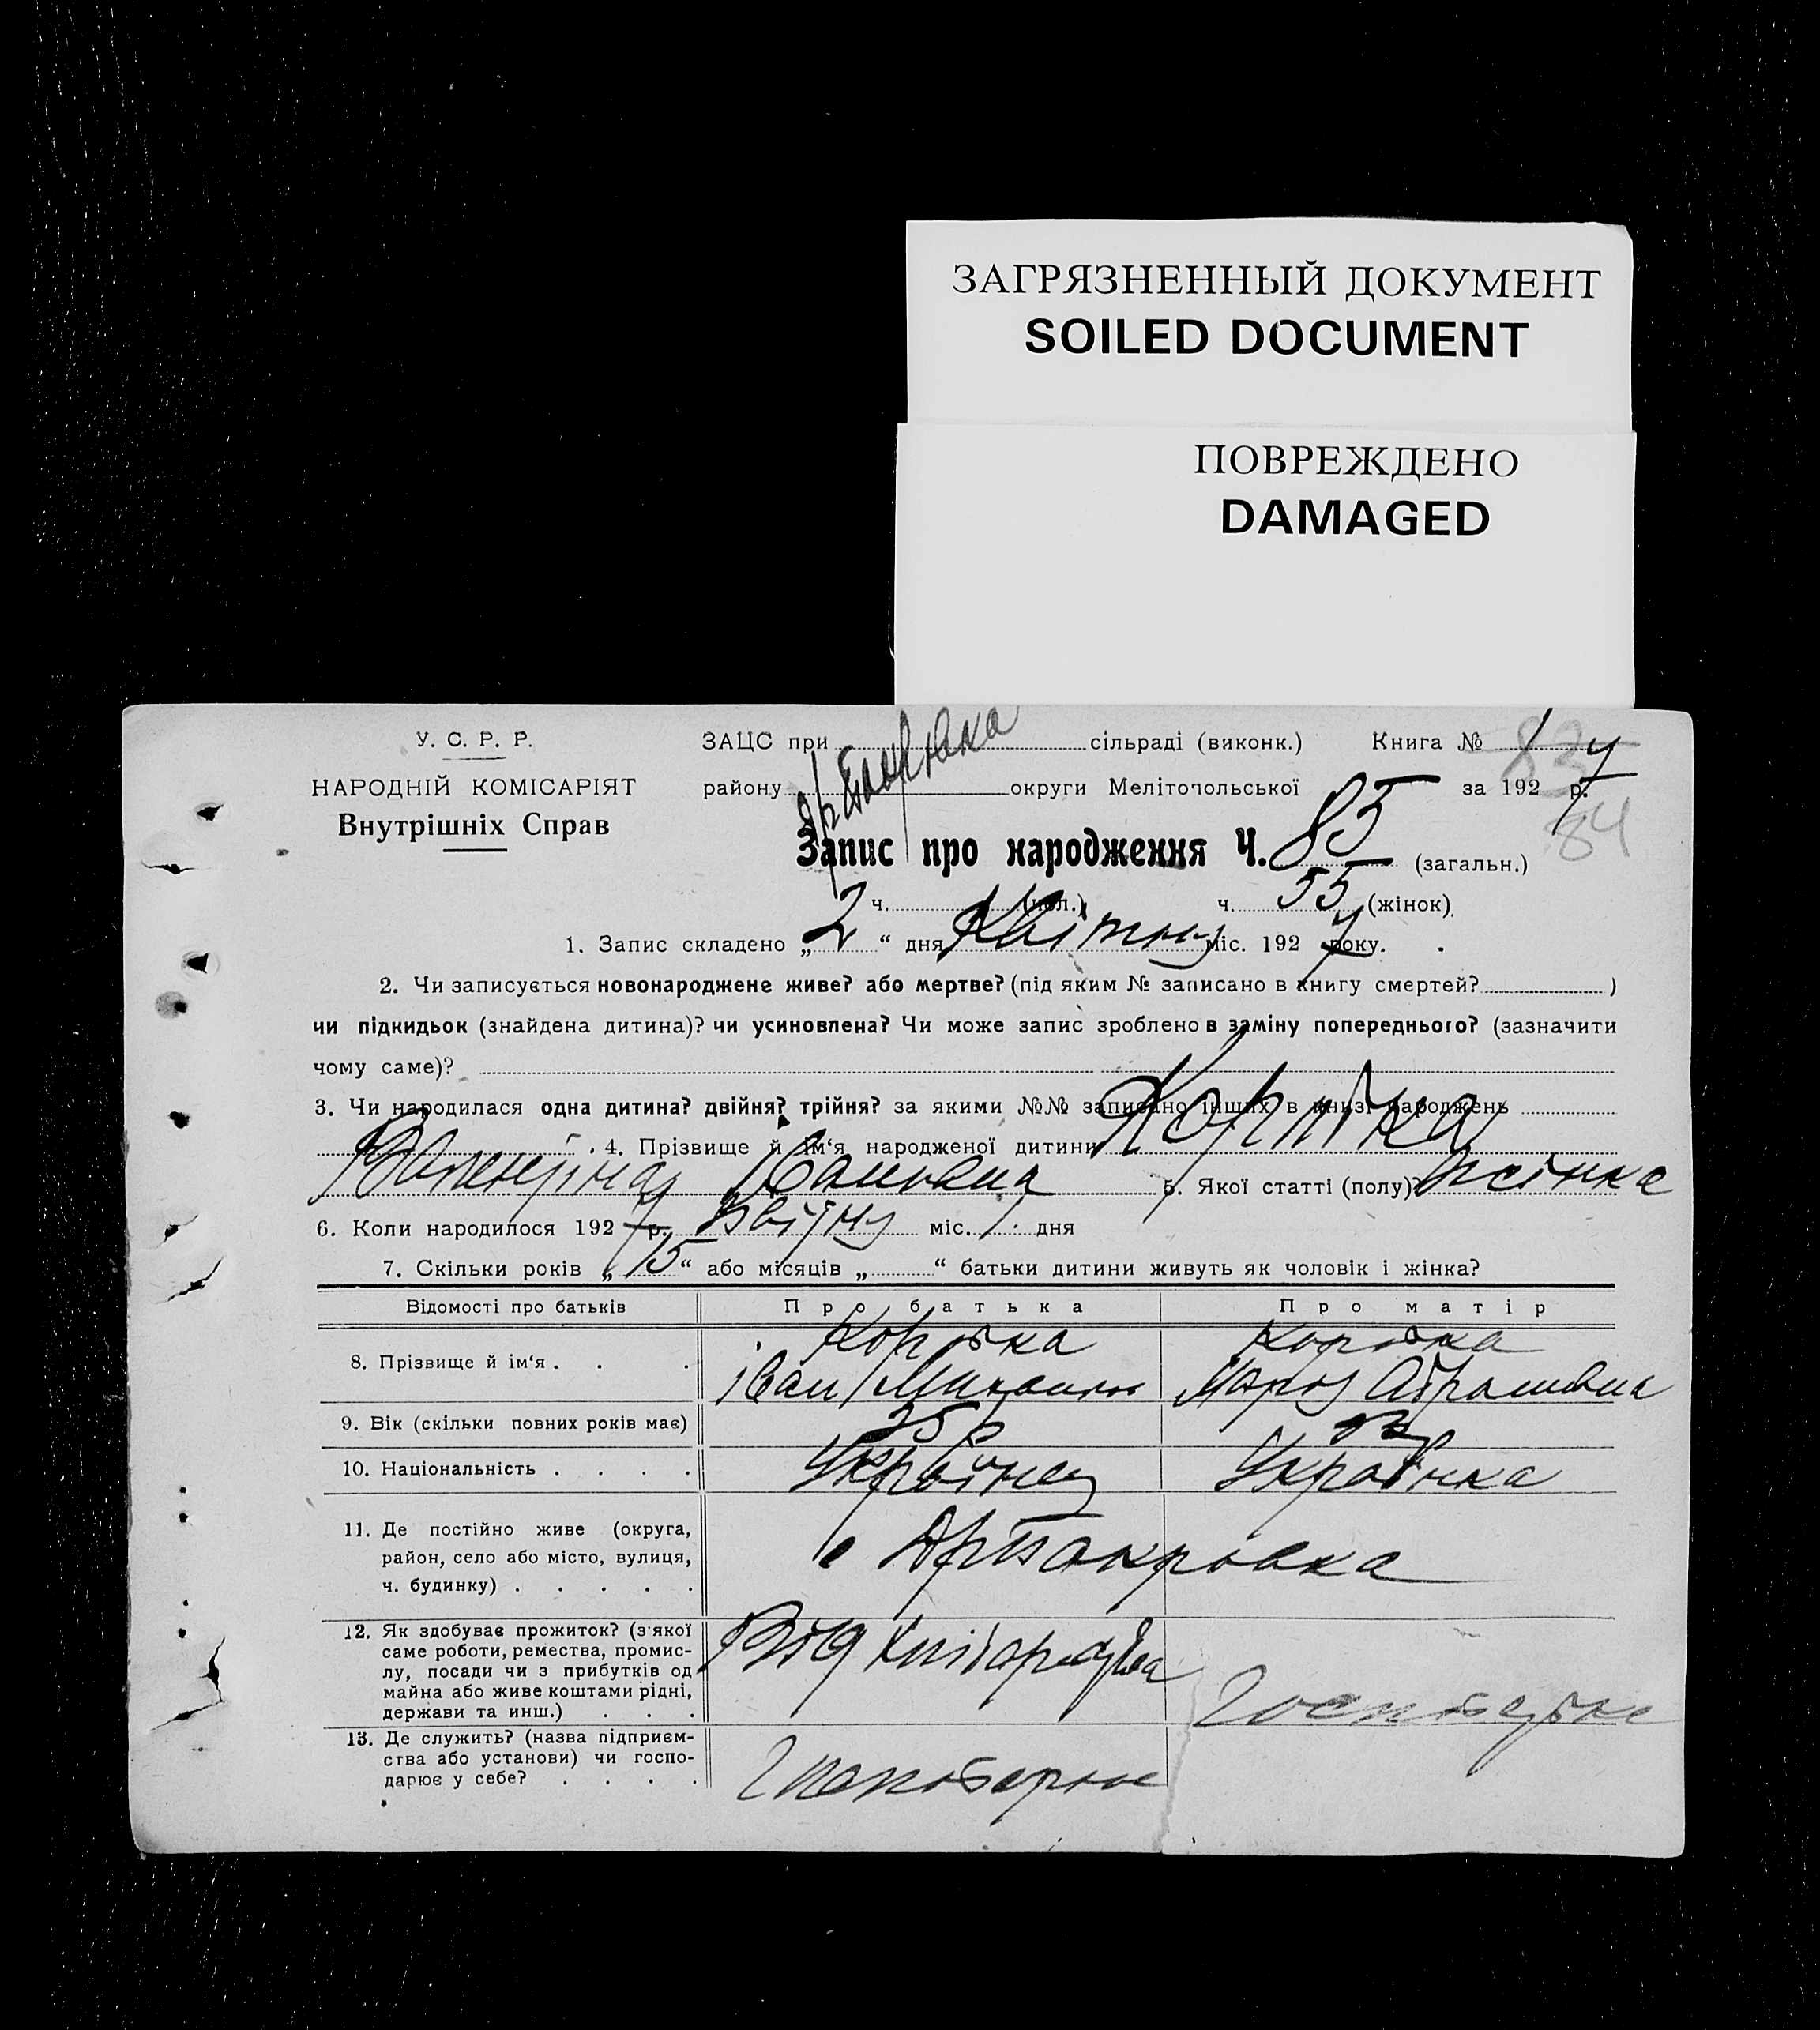 ЗАГРЯЗНЕННЫЙ ДОКУМЕНТ
SOILED DOCUMENT
ПОВРЕЖДЕНО
DAMAGED
У. С. Р. Р.
НАРОДНІЙ КОМІСАРІЯТ
Внутрішніх Справ
ЗАЦС при сільраді (виконк.) Книга № 1
району округи Мелітопольської за 1927 р.
84
Запис про народження Ч. 85 (загальн.)
ч. (чол.) ч. 55 (жінок)
1. Запис складено „ 2 “ дня Квітня міс. 1927 року.
2. Чи записується новонароджене живе? або мертве? (під яким № записано в книгу смертей? )
чи підкидьок (знайдена дитина)? чи усиновлена? Чи може запис зроблено в заміну попереднього? (зазначити
чому саме)?
3. Чи народилася одна дитина? двійня? трійня? за якими №№ записано інших в книзі народжень
4. Прізвище й ім‘я народженої дитини
Валентіна Івановна 5. Якої статті (полу)? жінка
6. Коли народилося 1927 р. Квітня міс. 1 дня
7. Скільки років „ 15 “ або місяців „ “ батьки дитини живуть як чоловік і жінка?
Відомості про батьків Про батька Про матір
8. Прізвище й ім‘я . . .
Іван
9. Вік (скільки повних років має) 35 р
10. Національність . . . . Українец Українка
11. Де постійно живе (округа,
район, село або місто, вулиця,
ч. будинку) . . . . .
12. Як здобуває прожиток? (з‘якої
саме роботи, ремества, промис-
лу, посади чи з прибутків од
майна або живе коштами рідні,
держави та инш.) . . .
Від хліборобства
13. Де служить? (назва підприєм-
ства або установи) чи госпо-
дарює у себе? . . . .